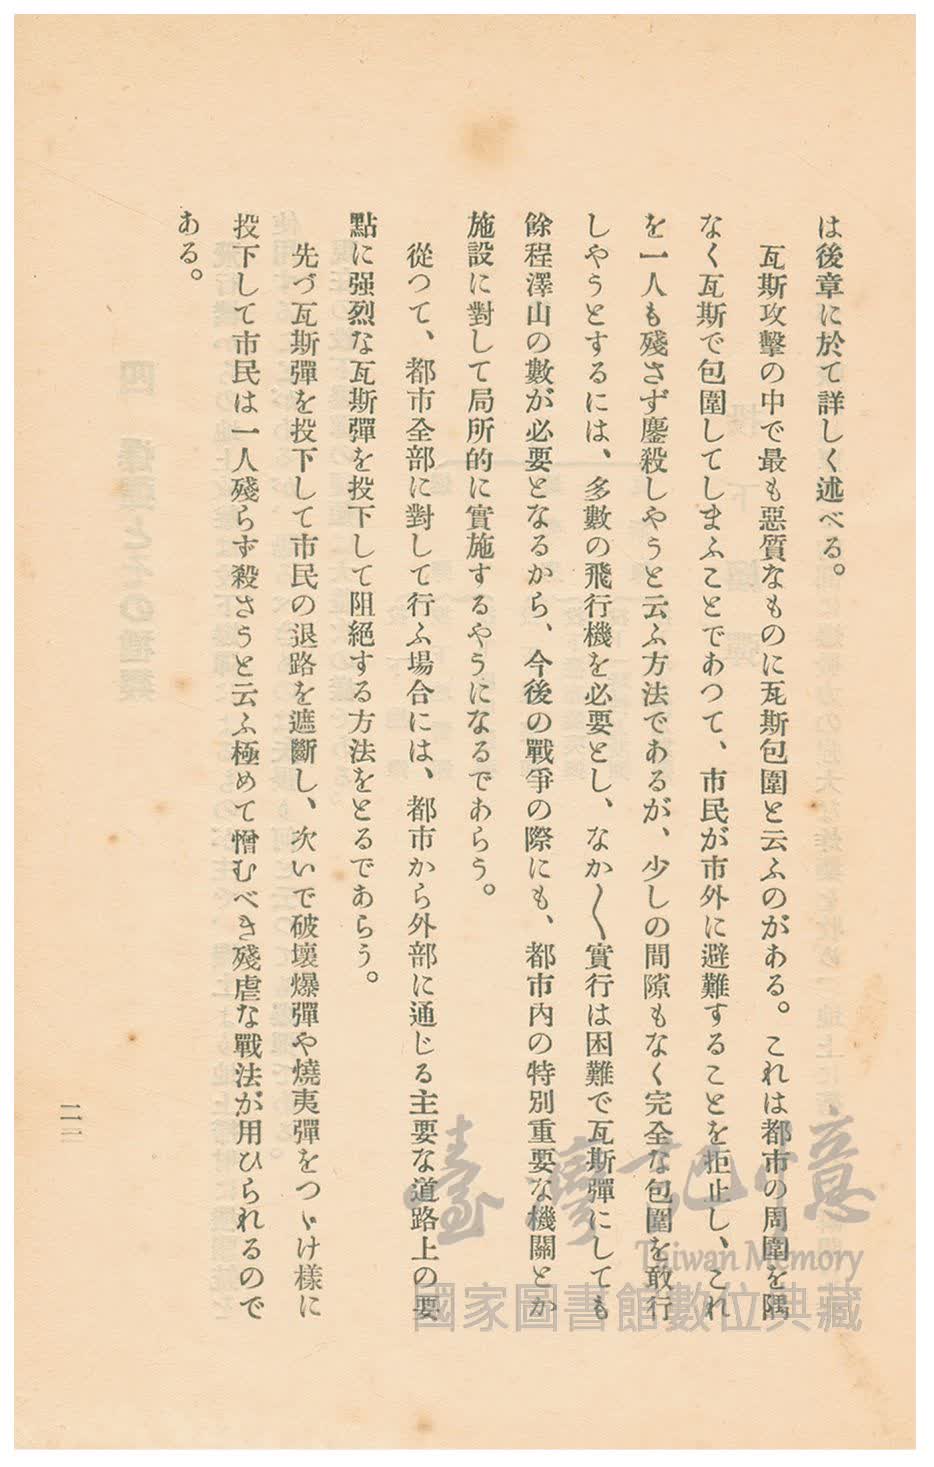 は後章に於て詳しく述べる。
瓦斯攻擊の中で最も惡質なものに瓦斯包圍と云ふのがある。これは都市の周圍を隅
なく瓦斯で包圍してしまふことであつて、市民が市外に避難することを拒止し、これ
を一人も殘さず鏖殺しやうと云ふ方法であるが、少しの間隙もなく完全な包圍を敢行
しやうとするには、多數の飛行機を必要とし、なか〱實行は困難で瓦斯彈にしても
餘程澤山の數が必要となるから、今後の戰爭の際にも、都市内の特別重要な機關とか
施設に對して局所的に實施するやうになるであらう。
從つて、都市全部に對して行ふ場合には、都市から外部に通じる主要な道路上の要
點に强烈な瓦斯彈を投下して阻絶する方法をとるであらう。
先づ瓦斯彈を投下して市民の退路を遮斷し、次いで破壞爆彈や燒夷彈をつゞけ樣に
投下して市民は一人殘らず殺さうと云ふ極めて憎むべき殘虐な戰法が用ひられるので
ある。
二一
臺灣記憶
Taiwan Memory
國家圖書館數位典藏